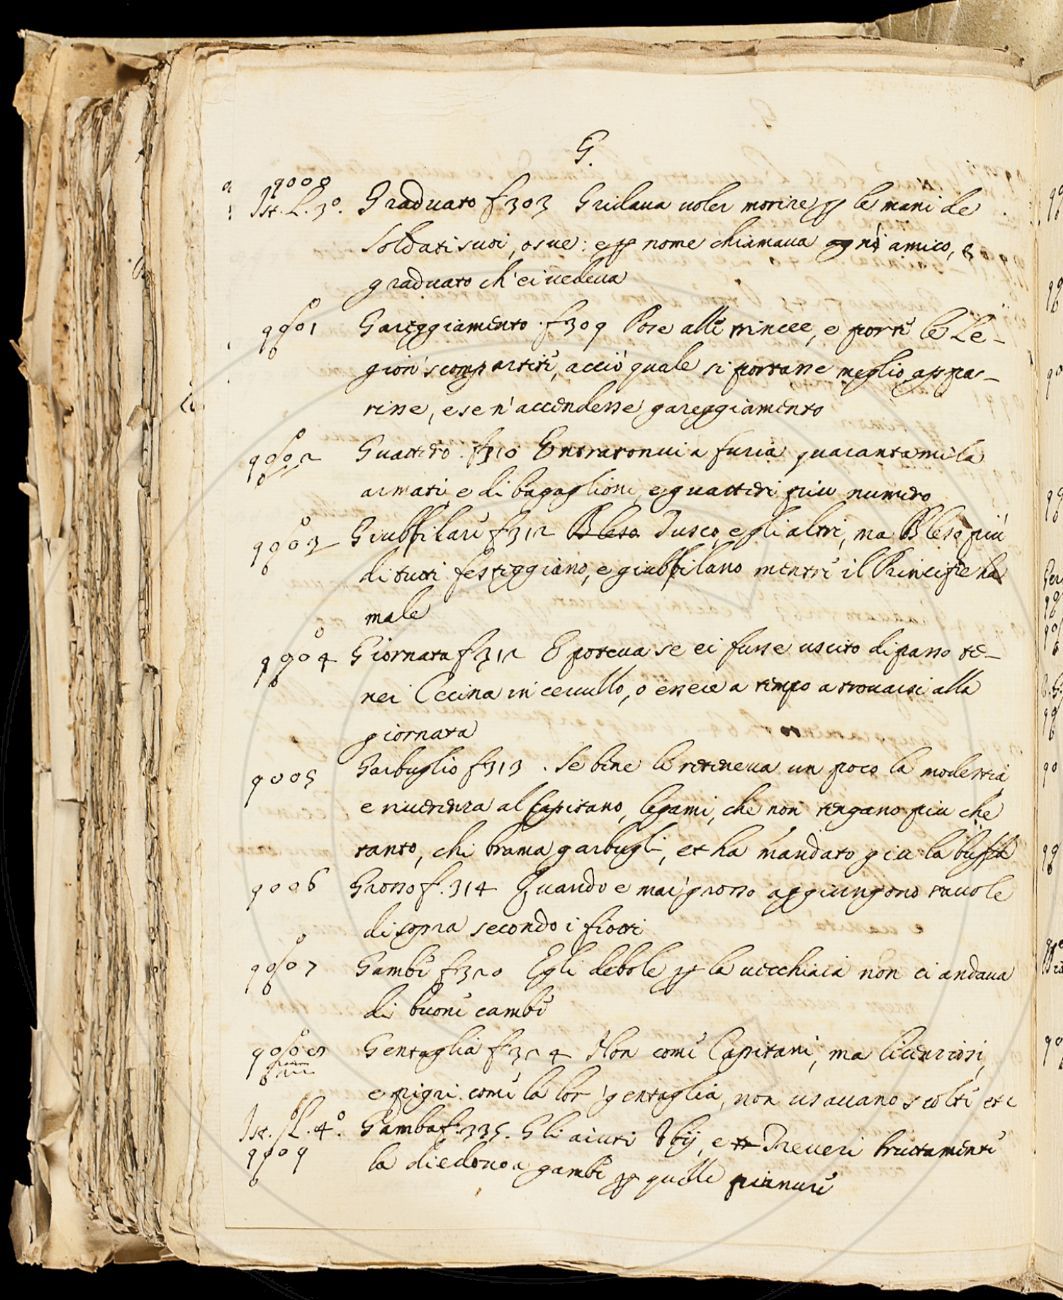 G.
9000
Ist. L. 3º. Graduato f 303 Gridava voler morire p le mani de
soldati suoi, o sue: e p nome chiamava ogni amico, e
graduato ch'ei vedeva
9001 Gareggiamento. f 309 Pose alle trincee, e porti le Le-
gioni scompartiti, acciò quale si portasse meglio appa-
risse, e se n'accendesse gareggiamento
9002 Guatteri. f 310 Entraronvi a furia quarantamila
armati e di bagaglioni, e guatteri più numero
9003 Giubbilare f 312 Bleso Iusco, e gli altri, ma Bleso più
di tutti festeggiano, e giubbilano mentre il Principe ha
male
9004 Giornata f 312 E poteva se ei fusse uscito di passo te-
ner Cecina in cervello, o essere a tempo a trovarsi alla
giornata
9005 Garbuglio f 313. Se bene le riteneva un poco la modestia
e riverenza al Capitano, legami, che non tengano più che
tanto, chi brama garbugli, et ha mandato giù la buffa
9006 Grosso f. 314 Quando e mai grosso aggiungono tavole
di sopra secondo i fiotti
9007 Gambe f 320 Egli debole p la vecchiaia non ci andava
di buone gambe
9008 Gentaglia f 324 Non come Capitani, ma licenziosi,
e pigri come la lor gentaglia, non usavano scolte etc
Ist. L. 4º. Gamba f 335. Gli aiuti Vbij, e Treveri bruttamente
9009 la diedono a gambe p quelle pianure